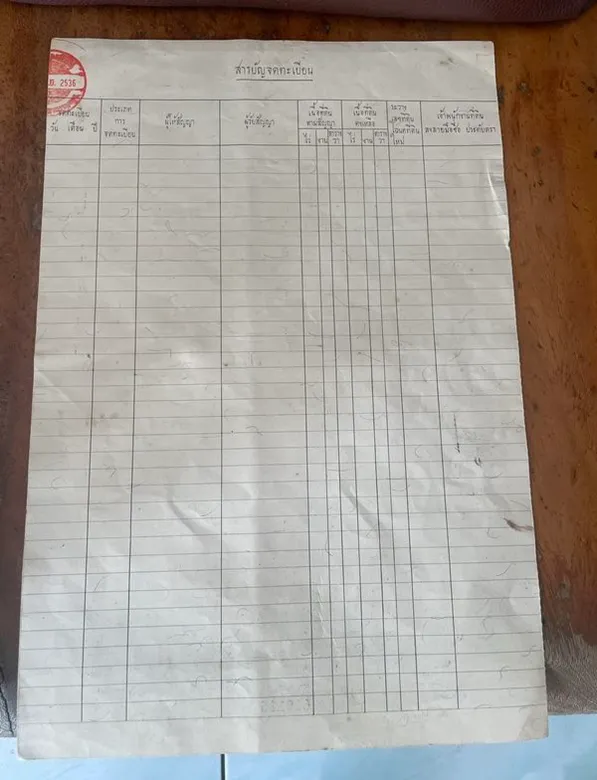 สารบัญจดทะเบียน
2536
จดทะเบียน
วัน เดือน ปี
ประเภท
การ
จดทะเบียน
ผู้ให้สัญญา
ผู้รับสัญญา
เนื้อที่ดิน
ตามสัญญา
ไร่ งาน ตาราง
วา
เนื้อที่ดิน
คงเหลือ
ไร่ งาน ตาราง
วา
ระวาง
เลขที่ดิน
โฉนดที่ดิน
ใหม่
เจ้าพนักงานที่ดิน
ลงลายมือชื่อ ประทับตรา